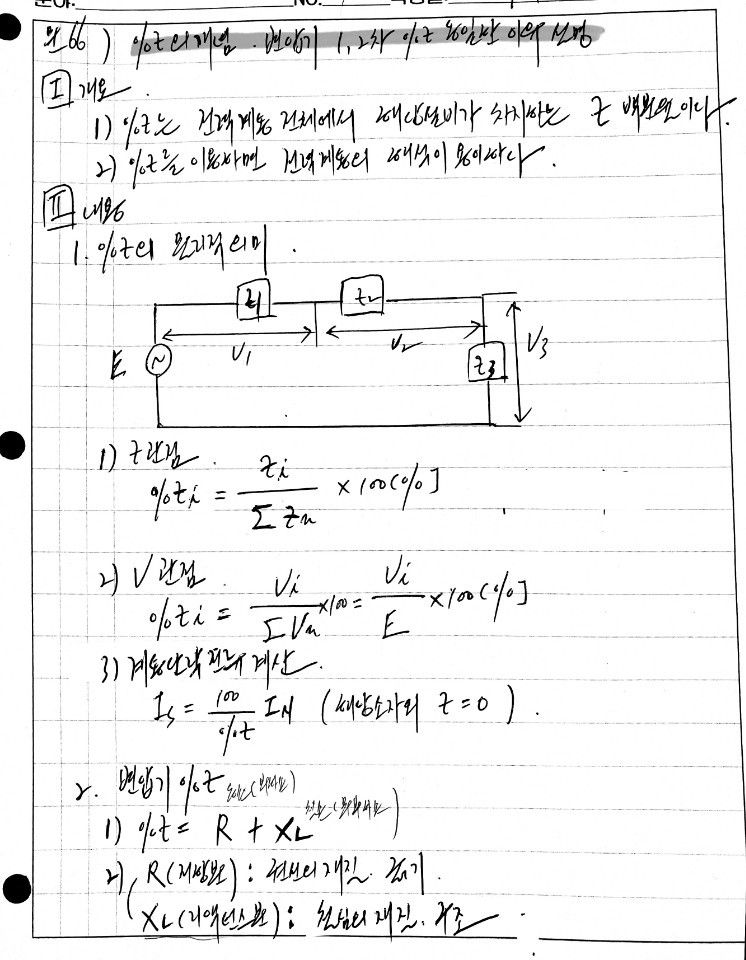 NO.
문66) %Z의 개념. 변압기 1,2차 %Z 동일한 이유 설명
I 개요
1) %Z는 전력계통 전체에서 해당설비가 차지하는 Z 백분율이다.
2) %Z를 이용하면 전력계통의 해석이 용이하다.
II 내용
1. %Z의 물리적 의미.
Z1 Z2
V1 V2 V3
E ~ Z3
1) Z관점.
%Zi = Zi / ΣZn × 100[%]
2) V관점.
%Zi = Vi / ΣVn ×100 = Vi / E ×100[%]
3) 계통단락전류 계산.
Is = 100 / %Z IN (해당소자외 Z=0).
2. 변압기 %Z
1) %Z = R + XL
2) R(저항분) : 권선의 재질. 굵기.
XL(리액턴스분) : 철심의 재질. 구조.